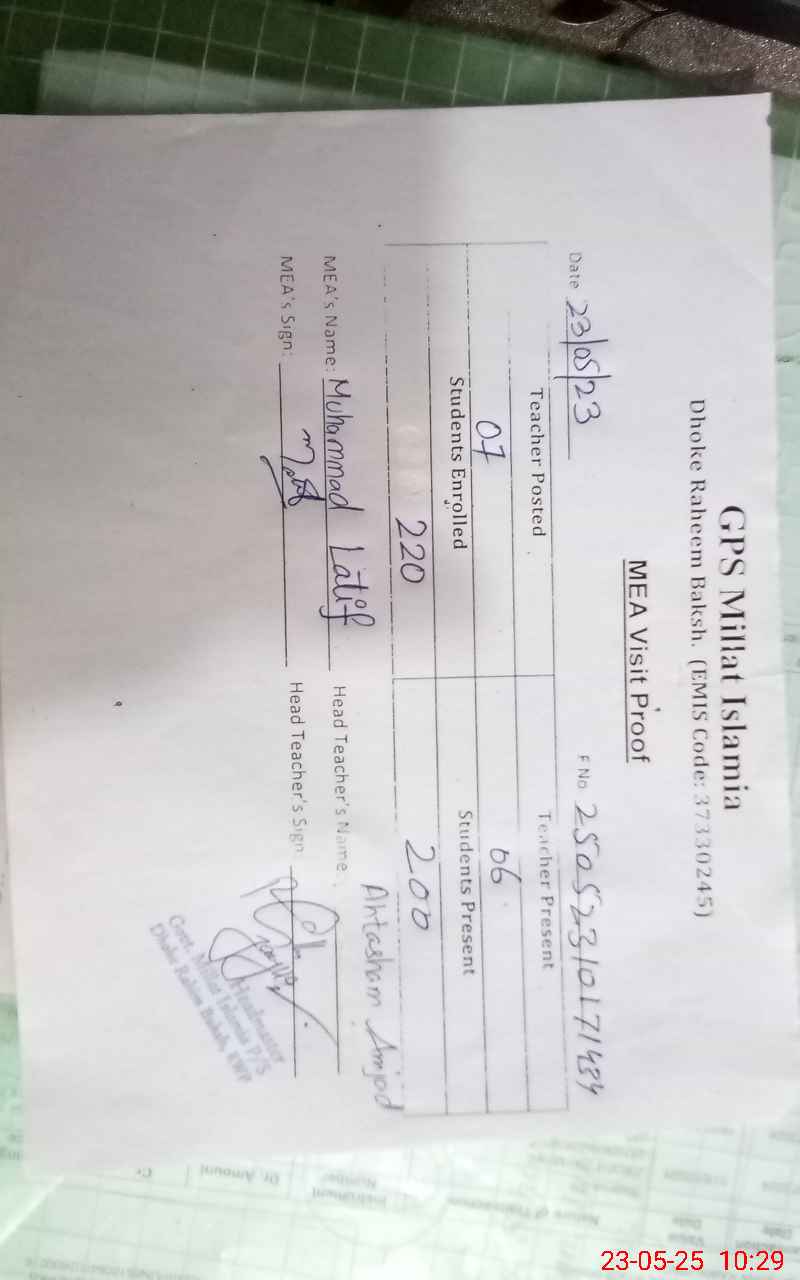 GPS Millat Islamia
Dhoke Raheem Baksh. (EMIS Code: 37330245)
MEA Visit Proof
Date 23/05/23 F No 25052310171484
Teacher Posted Teacher Present
07 06
Students Enrolled Students Present
220 200
MEA's Name: Muhammad Latif Head Teacher's Name Ahtasham Amjad
MEA's Sign: Head Teacher's Sign
Headmaster
Govt. Millat Islamia P/S
Dhoke Rahim Baksh, RWP
Dr. Amount
Number
Instrument
Nature of Transaction
Value
Date
23-05-25 10:29